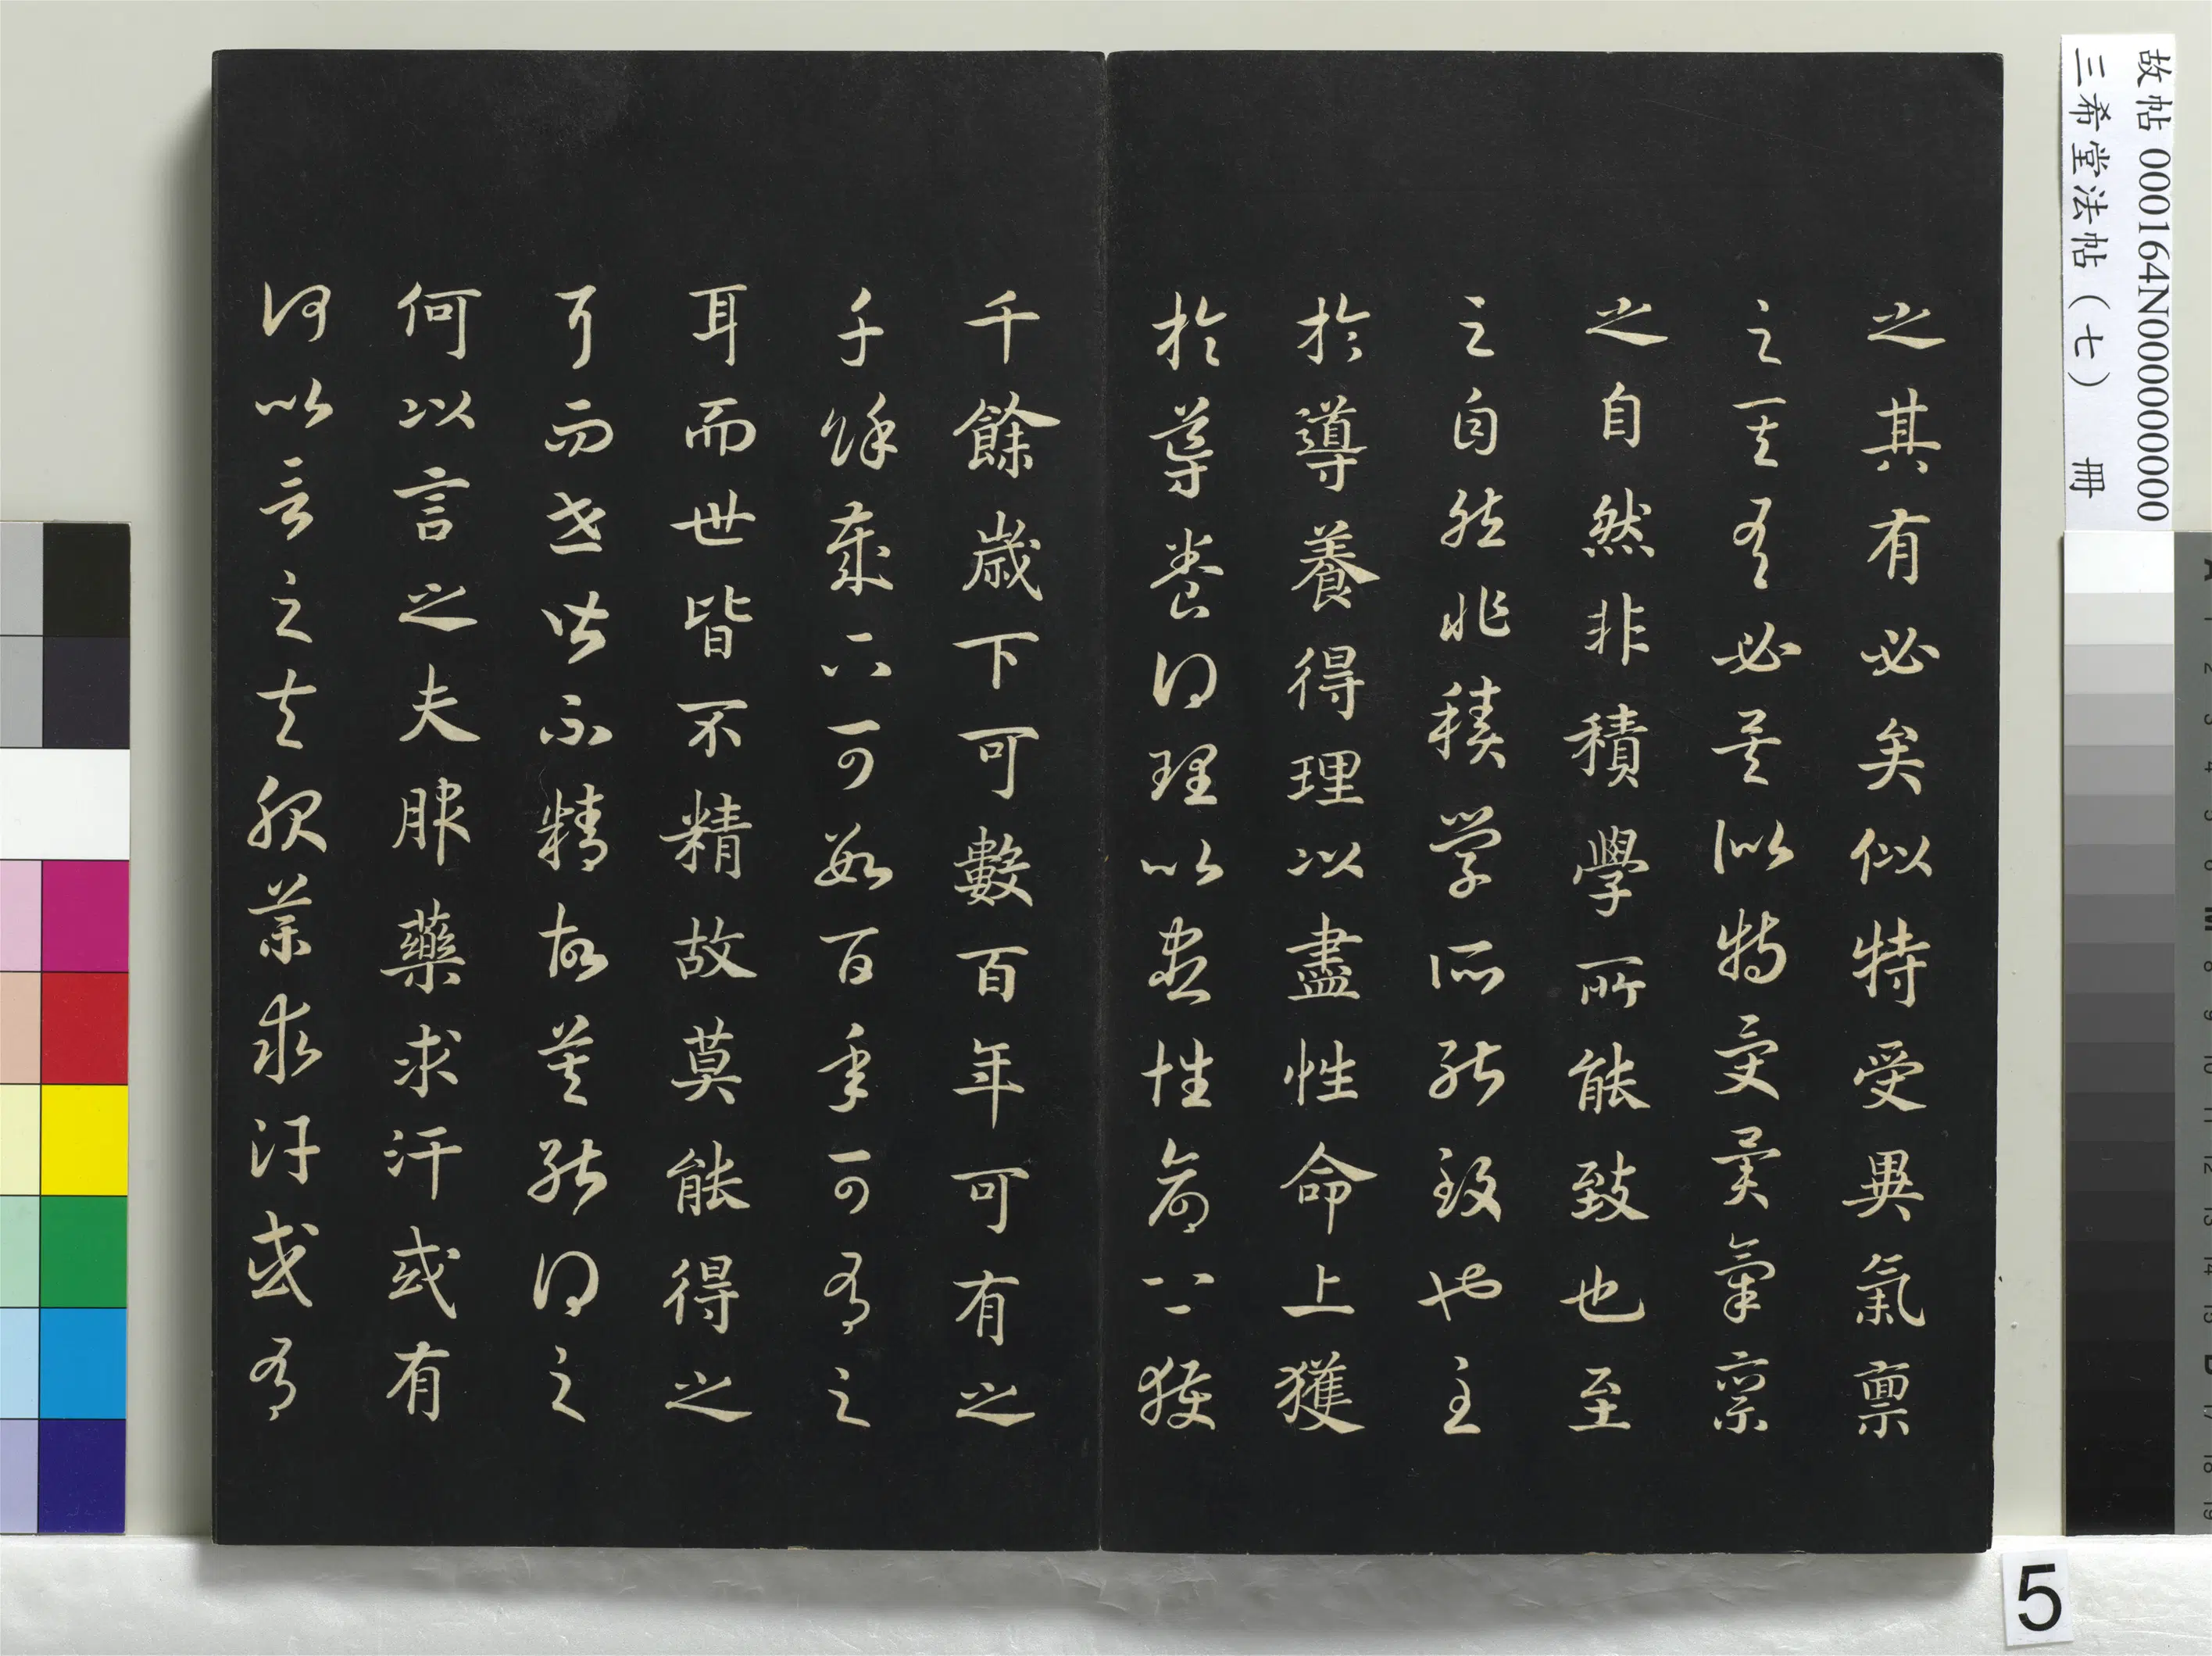 故帖 000164N000000000
三希堂法帖（七） 冊
之其有必矣似特受異氣稟
之其有必矣似特受異氣稟
之自然非積學所能致也至
之自然非積學所能致也至
於導養得理以盡性命上獲
於導養得理以盡性命上獲
千餘歲下可數百年可有之
千餘歲下可數百年可有之
耳而世皆不精故莫能得之
耳而世皆不精故莫能得之
何以言之夫服藥求汗或有
何以言之夫服藥求汗或有
5